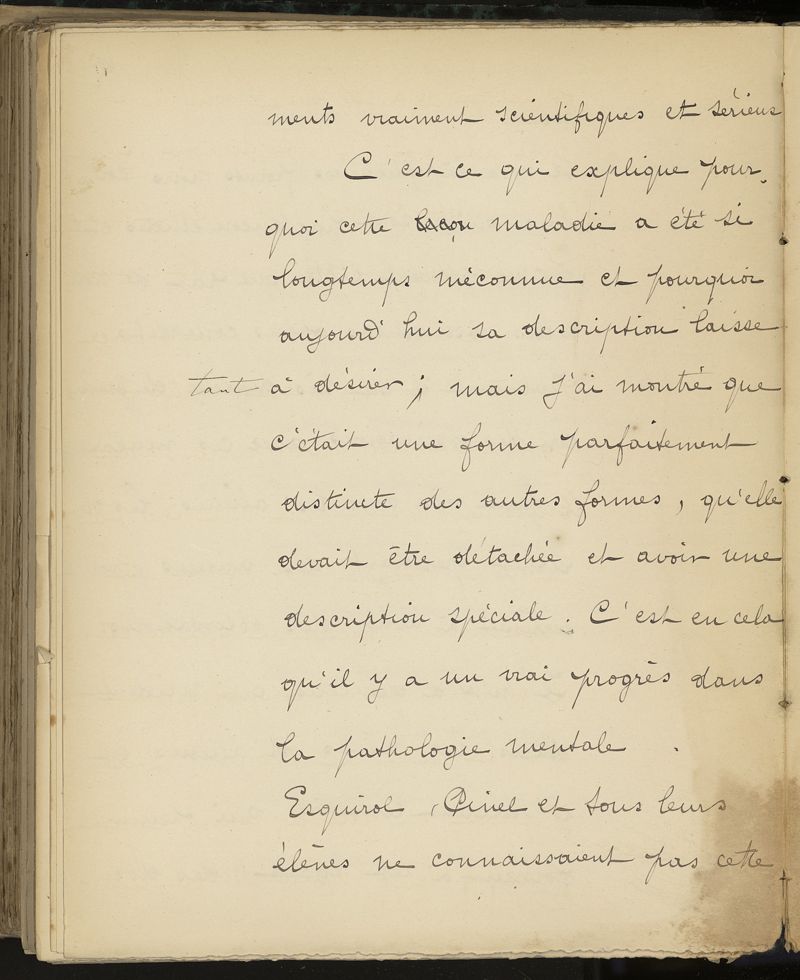 ments vraiment scientifiques et sérieux
C'est ce qui explique pour-
quoi cette leçon maladie a été si
longtemps méconnue et pourquoi
aujourd'hui sa description laisse
tant à désirer ; mais j'ai montré que
c'était une forme parfaitement
distincte des autres formes, qu'elle
devait être détachée et avoir une
description spéciale. C'est en cela
qu'il y a un vrai progrès dans
la pathologie mentale .
Esquirol, Pinel et tous leurs
élèves ne connaissaient pas cette